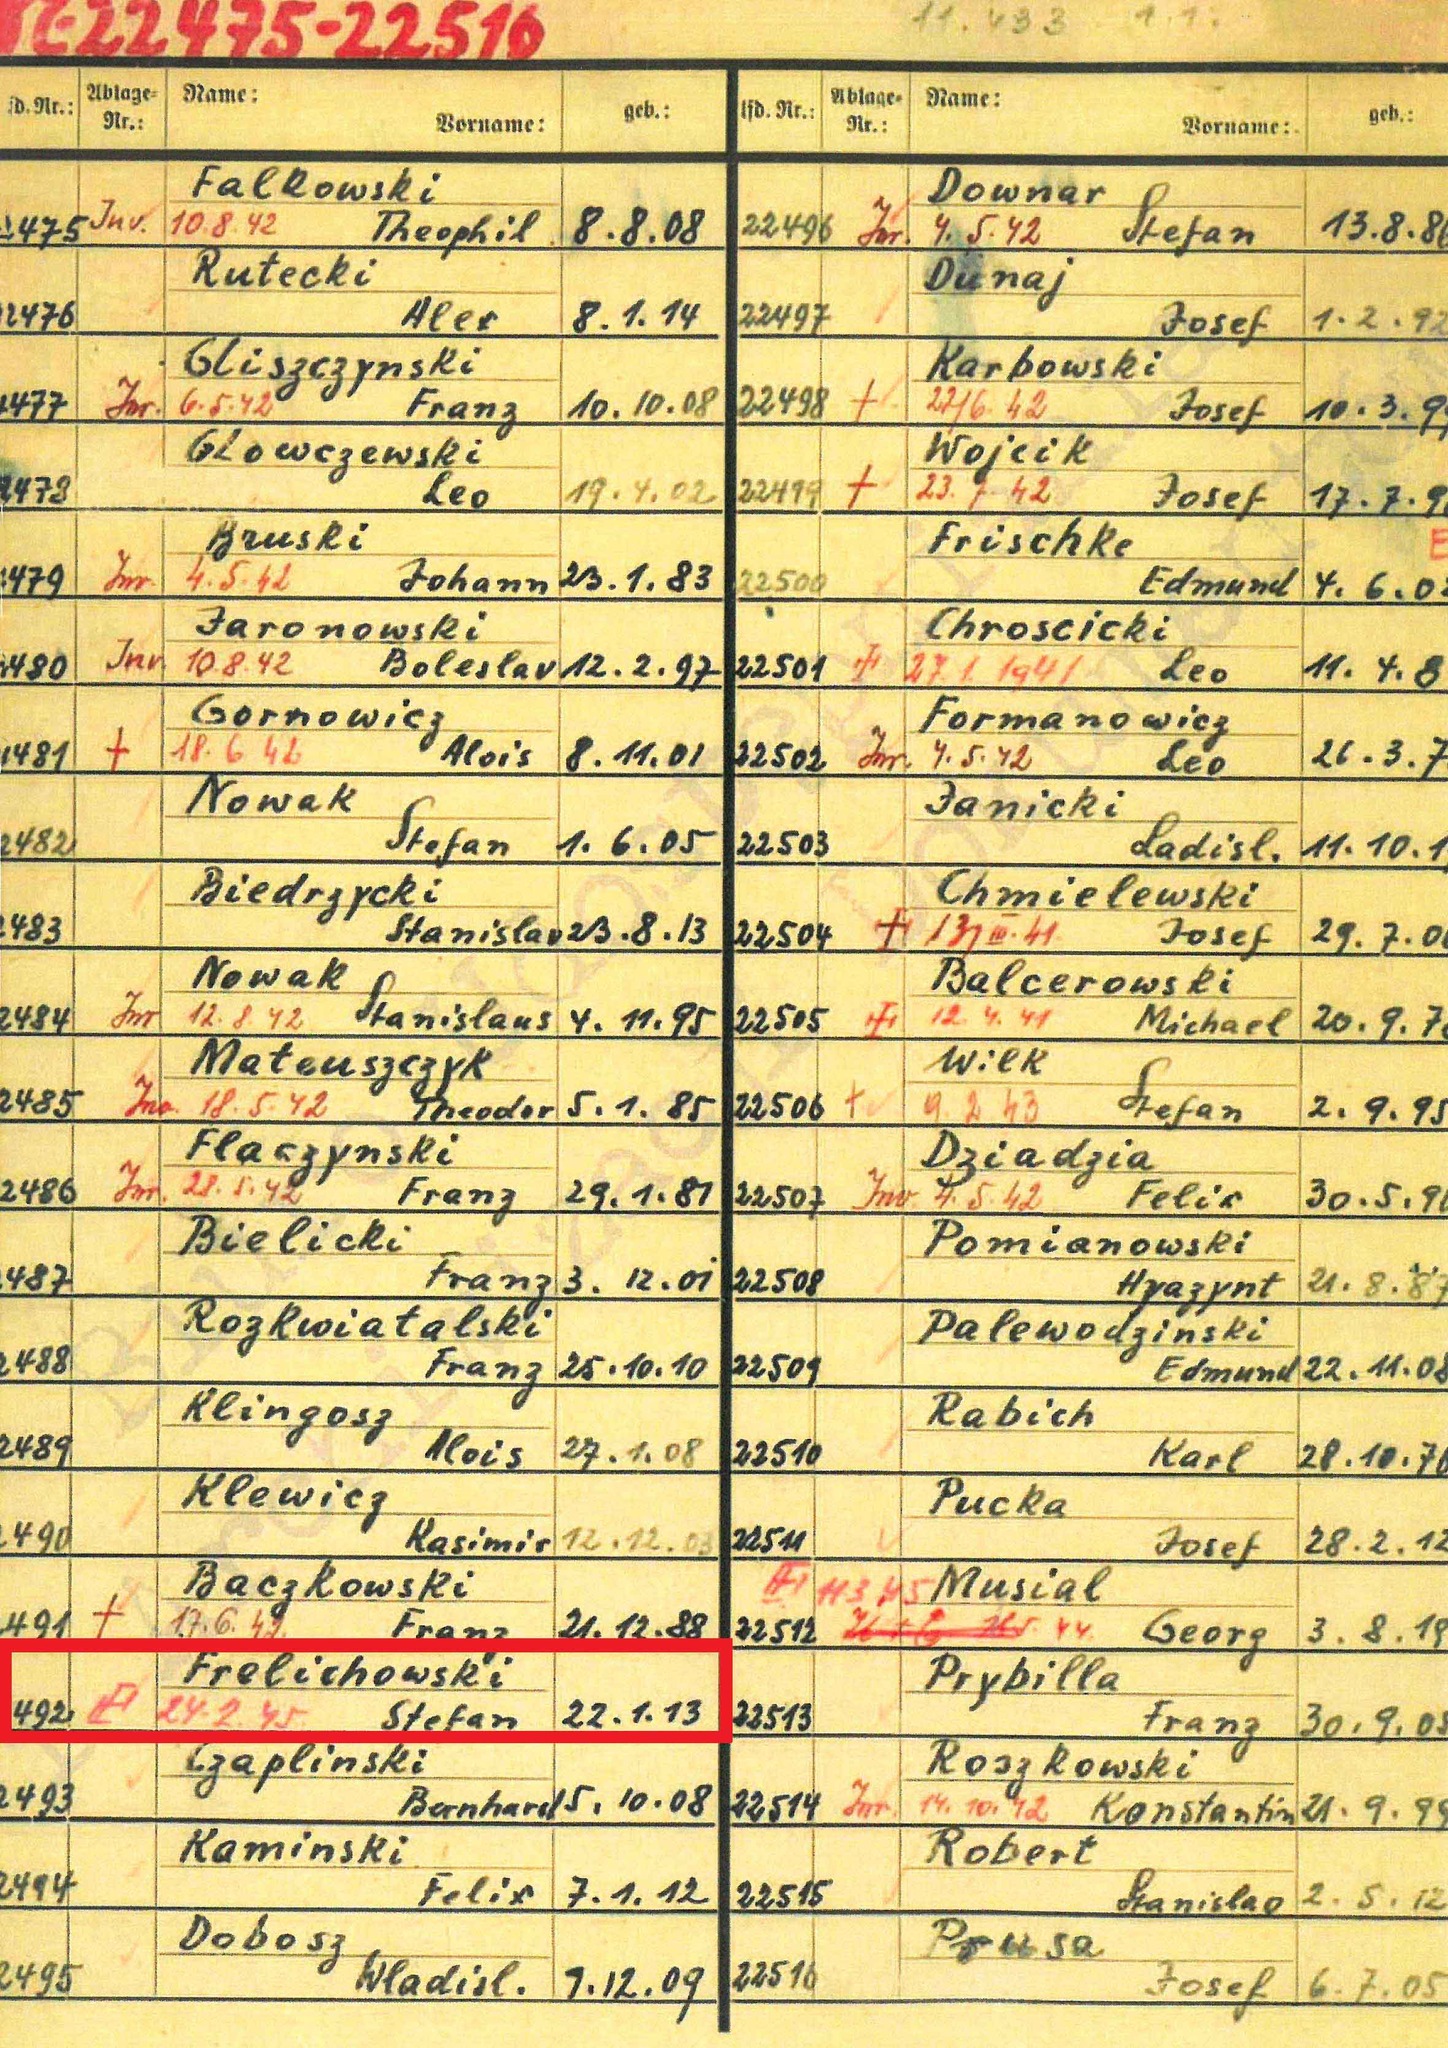 22475-22516
11.433 1.1.
fd. Nr.: Ablage-Nr.: Name: Vorname: geb.:
475 Inv. Falkowski
10.8.42 Theophil 8.8.08
Rutecki
2476 Alex 8.1.14
Gliszczynski
477 Inv. 6.5.42 Franz 10.10.08
Glowczewski
Leo 19.4.02
Bruski
479 Inv. 4.5.42 Johann 23.1.83
Jaronowski
480 Inv. 10.8.42 Boleslav 12.2.97
Gornowicz
481 + 18.6.42 Alois 8.11.01
Nowak
2482 Stefan 1.6.05
Biedrzycki
483 Stanislav 23.8.13
Nowak
2484 Inv 12.8.42 Stanislaus 4.11.95
Mateuszczyk
2485 Inv. 18.5.42 Theodor 5.1.85
Flaczynski
2486 Inv. 28.5.42 Franz 29.1.81
Bielicki
487 Franz 3.12.01
Rozkwiatalski
488 Franz 25.10.10
Klingosz
2489 Alois 27.1.08
Klewicz
490 Kasimir 12.12.03
Baczkowski
491 + 17.6.42 Franz 21.12.88
Frelichowski
492 24.2.45 Stefan 22.1.13
Czaplinski
2493 Bernhard 5.10.08
Kaminski
2494 Felix 7.1.12
Dobosz
2495 Wladisl. 7.12.09
lfd. Nr.: Ablage-Nr.: Name: Vorname: geb.:
Downar
22496 Inv. 4.5.42 Stefan 13.8.8
Dunaj
22497 Josef 1.2.92
Karbowski
22498 + 22/6.42 Josef 10.3.9
Wojcik
22499 + 23.7.42 Josef 17.7.9
Frischke
22500 Edmund 4.6.0
Chroscicki
22501 27.1.1941 Leo 11.4.8
Formanowicz
22502 Inv. 4.5.42 Leo 26.3.7
Janicki
22503 Ladisl. 11.10.1
Chmielewski
22504 13/III.41 Josef 29.7.0
Balcerowski
22505 12.4.41 Michael 20.9.7
Wilk
22506 + 9.2.43 Stefan 2.9.95
Dziadzia
22507 Inv. 4.5.42 Felix 30.5.9
Pomianowski
22508 Hyazynt 21.8.87
Palewodzinski
22509 Edmund 22.11.08
Rabich
22510 Karl 28.10.7
Pucka
22511 Josef 28.2.12
Musial
22512 Georg 3.8.19
Prybilla
22513 Franz 30.9.03
Roszkowski
22514 Inv. 14.10.42 Konstantin 21.9.99
Robert
22515 Stanislao 2.5.12
Prusa
22516 Josef 6.7.05